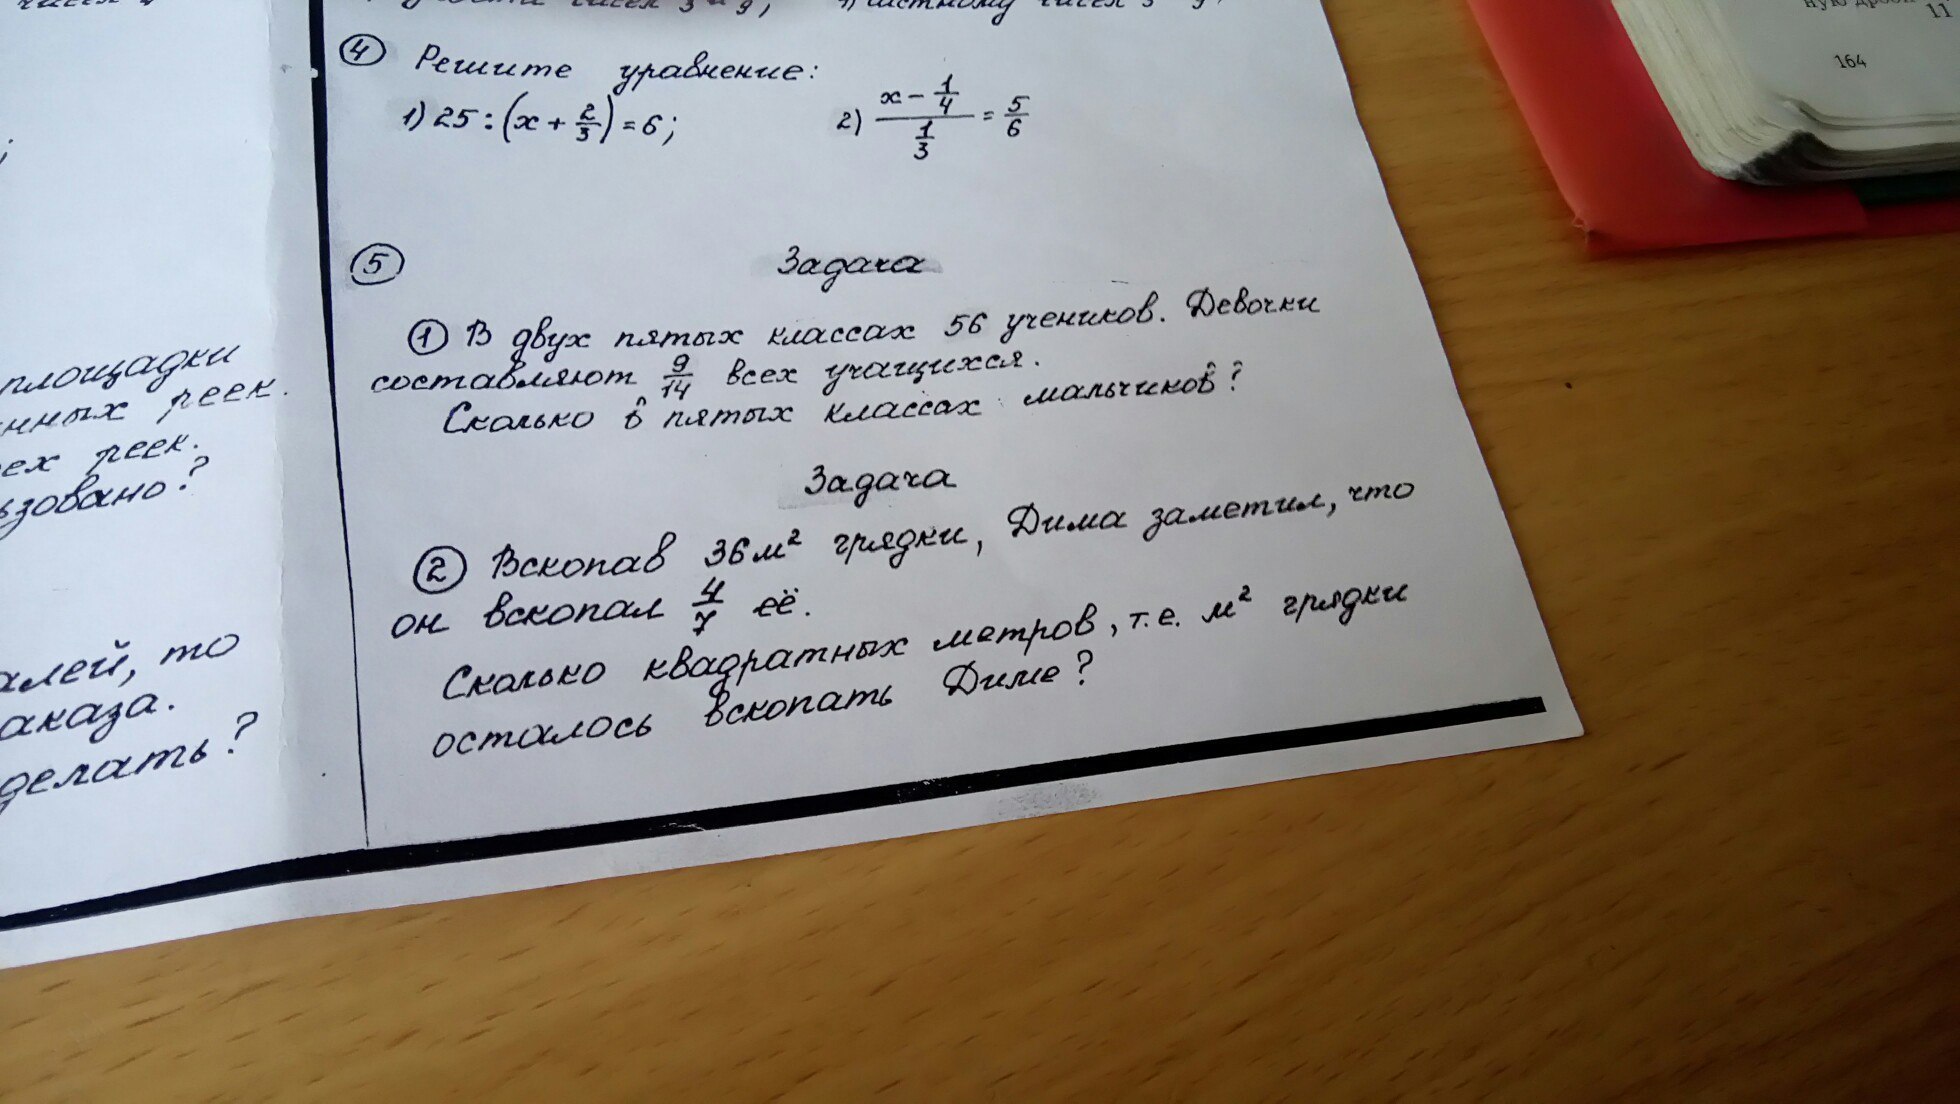 чисел
④ Решите уравнение:
1) 25 : (x + 2/3) = 6; 2) (x - 1/4)/(1/3) = 5/6
⑤ Задача
① В двух пятых классах 56 учеников. Девочки
составляют 9/14 всех учащихся.
Сколько в пятых классах мальчиков?
Задача
② Вскопав 36 м² грядки, Дима заметил, что
он вскопал 4/7 её.
Сколько квадратных метров, т.е. м² грядки
осталось вскопать Диме?
площадки
нных реек.
ех реек.
ьзовано?
алей, то
аказа.
делать?
11
164